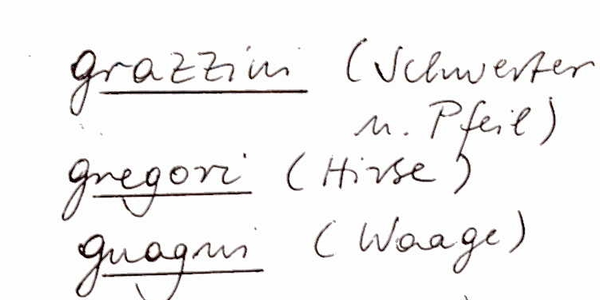 grazzini (Schwerter
u. Pfeil)
gregori (Hirse)
guagni (Waage)